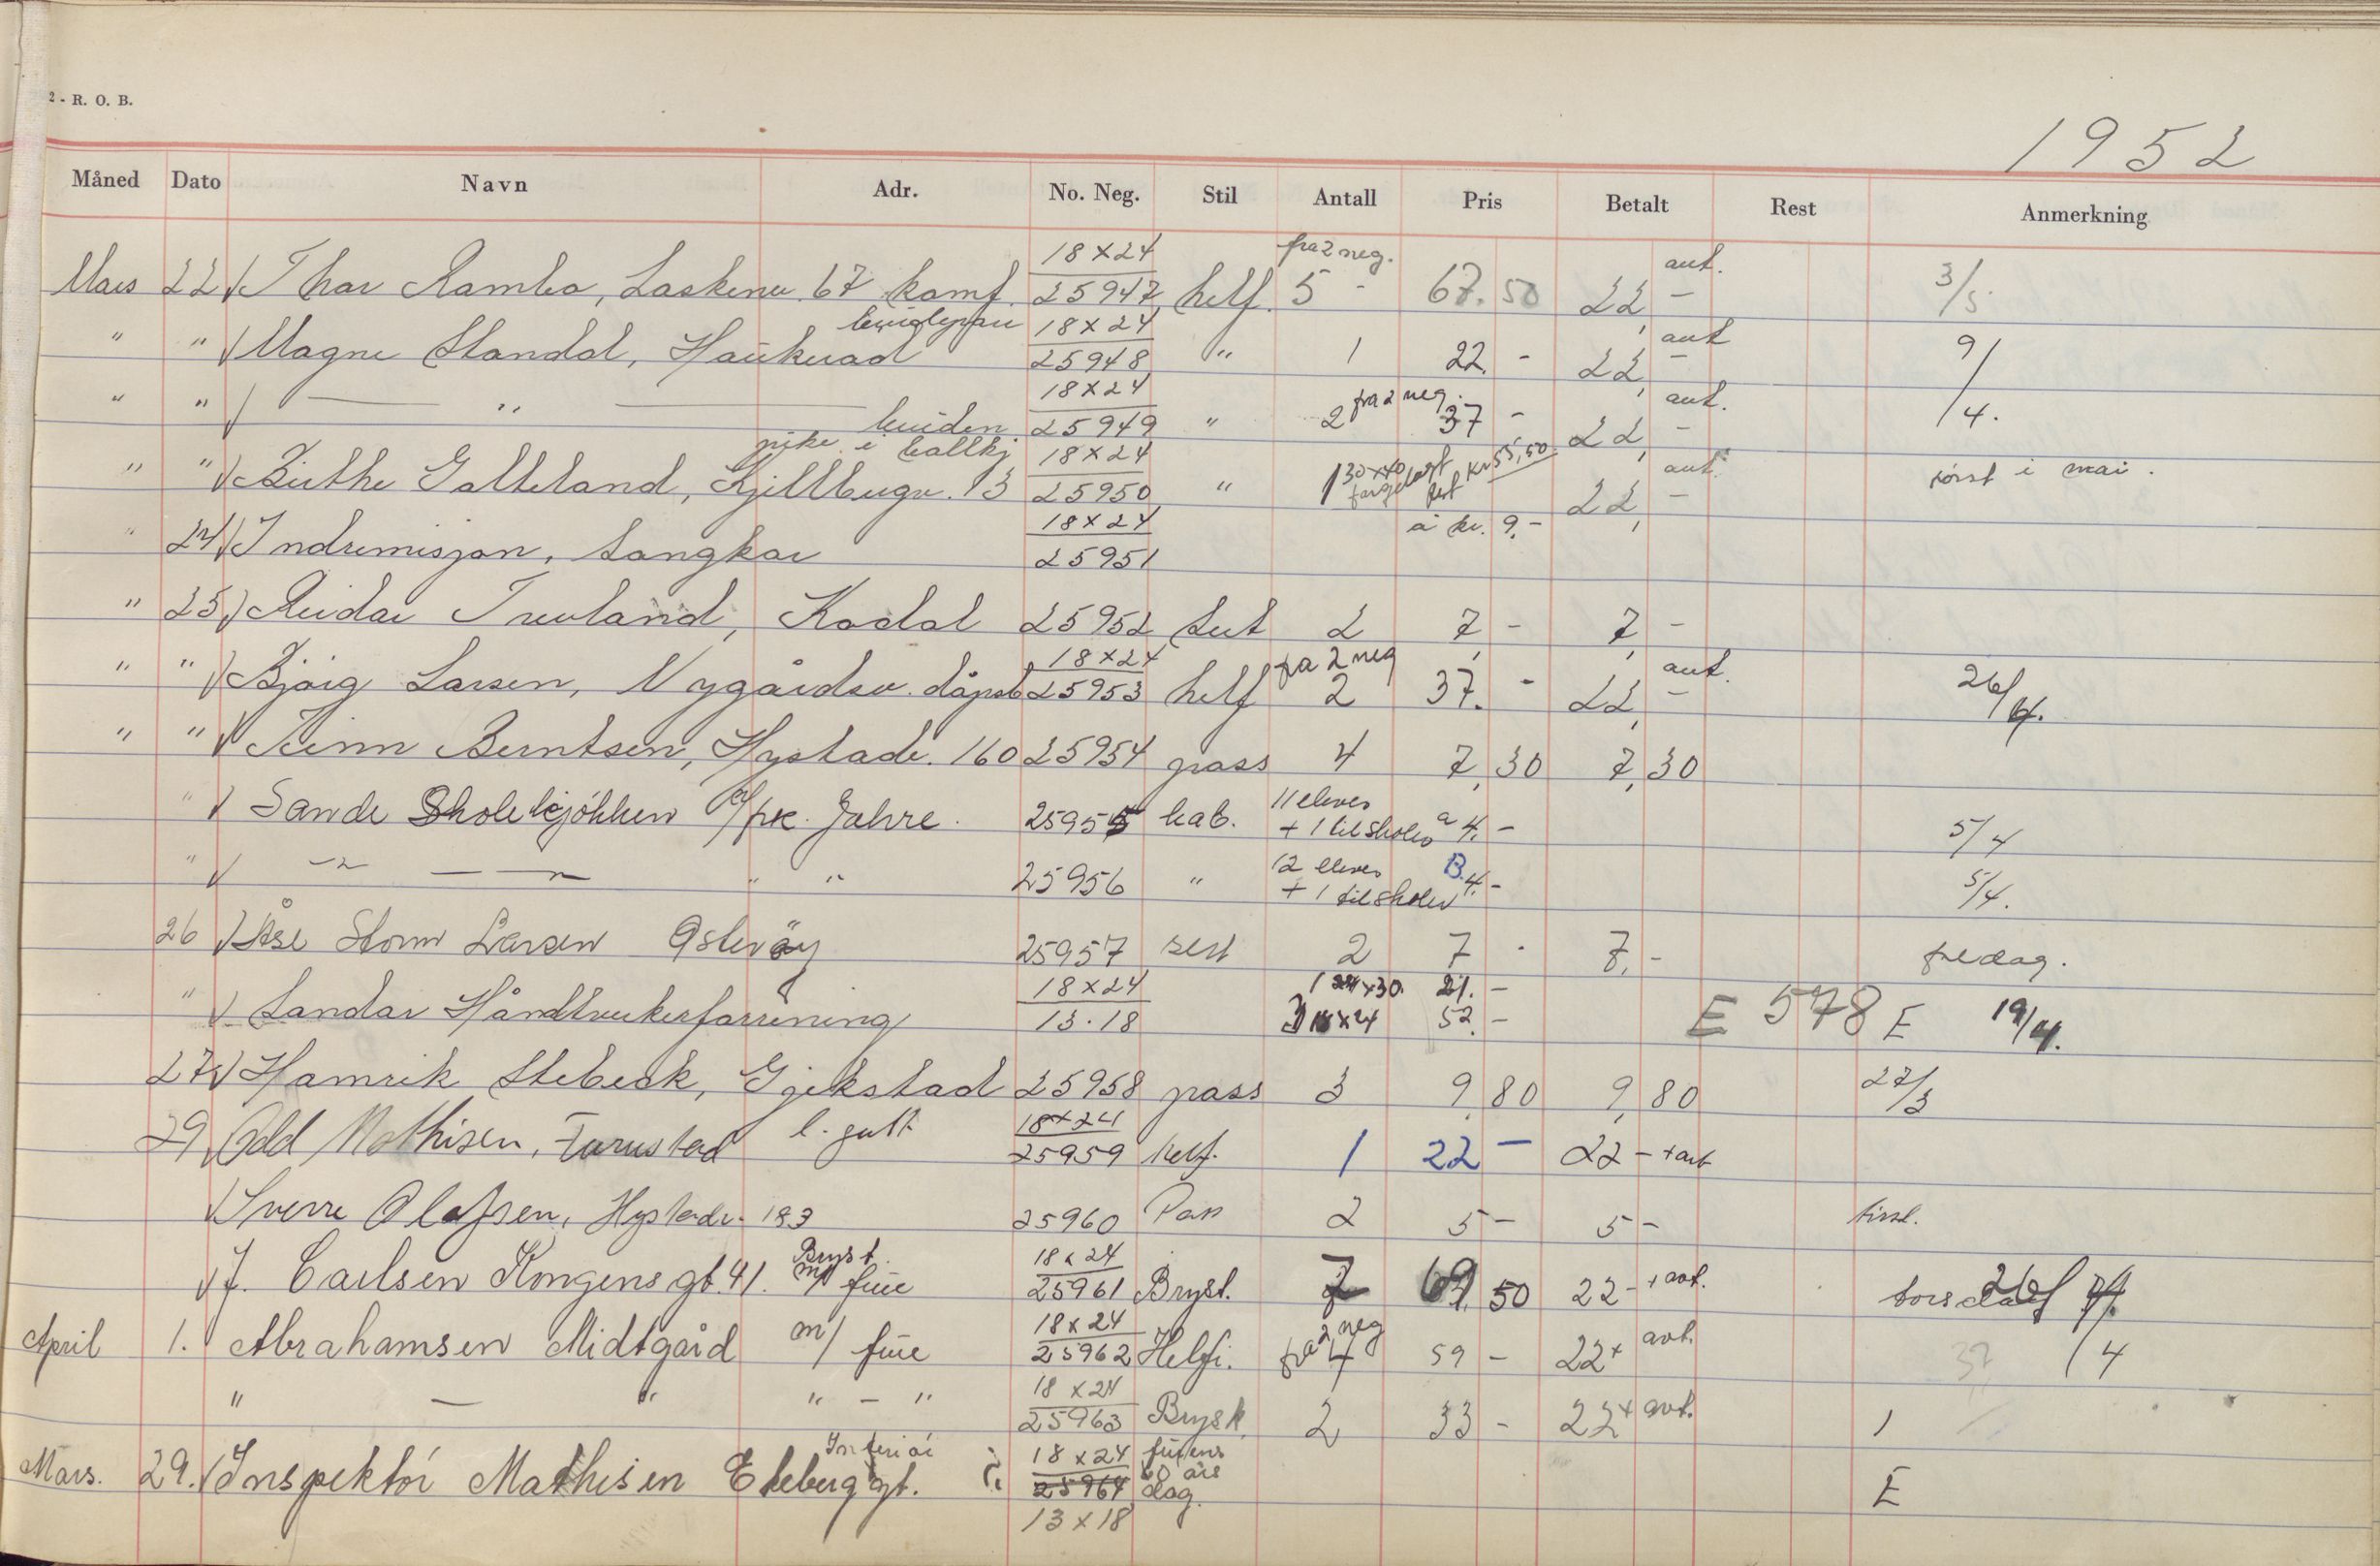 2 - R. O. B.
1952
Måned Dato Navn Adr. No. Neg. Stil Antall Pris Betalt Rest Anmerkning
Mars 22 √ Thor Rambo, 67 komf. 18x24 25947 helf. fra 2 neg. 5 - 67.50 22,- ant. 3/5
" " √ Magne Standal, Haukerød 18x24 25948 " 1 22.- 22,- ant 9/4.
" " √ — " — bruden 18x24 25949 " 2 fra 2 neg. 37 - 22,- ant.
" " √ Galteland, 13 pike i ballkj 18x24 25950 " 1 30x40 fargelagt Rest kr 55,50 22,- ant. først i mai.
" 24 √ Indremisjon, Sangkor 18x24 25951 à kr. 9,-
" 25 √ Reidar Kodal 25952 2 7,- 7,-
" " √ Bjørg Larsen, Nygårdsv. dåpsb 18x24 25953 helf fra 2 neg 2 37.- 22,- ant. 26/4.
" " √ Finn Berntsen, Hystadv. 160 25954 pass 4 7,30 7,30
" √ Sande Skolekjøkken v/frk. Jahre. 25955 kab. 11 elever + 1 til skolen a 4.- 5/4
" √ — " — " " 25956 " 12 elever + 1 til skolen B. 4.- 5/4.
26 √ Åse Storm Larsen Østerøy 25957 2 7 - 7,- fredag.
" √ Sandar Håndverkerforening 18x24 13.18 1 24x30. 21.- 3 18x24 52.- E 578 E 19/4.
27 √ Hamrik Stebeck, Gjekstad 25958 pass 3 9,80 9,80 27/3
29 √ Odd Mathisen, Furustad 18x24 25959 helf. 1 22 - 22 - + ant
√ Sverre Olafsen, Hystadv. 183 25960 Pass 2 5 - 5 - tirsd.
√ J. Carlsen Kongensgt. 41. Bryst. m/ frue 18x24 25961 Bryst. 7 69,50 22 - + ant. torsdag 26/4.
April 1. Abrahamsen Midtgård m/ frue 18x24 25962 Helfi. fra 2 neg 4 59 - 22 + ant. /4
" — " " — " 18x24 25963 Bryst 2 33 - 22 + ant. 1
Mars. 29. √ Inspektør Mathisen Ekeberggt. Interiør 18x24 25964 13x18 fruens 60 års dag. E